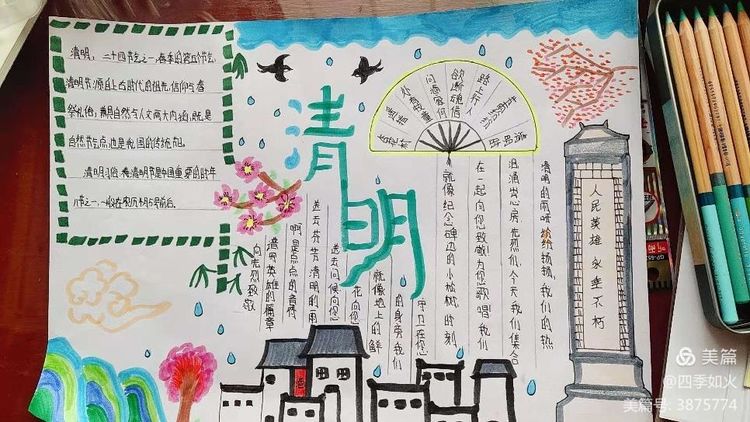 清明，二十四节气之一，春季的第五个节气
清明节源自上古时代的祖先信仰与春
祭礼俗，兼具自然与人文两大内涵，既是
自然节气点，也是我国的传统节日。
清明习俗
清明节是中国重要的时年
八节之一，一般在公历4月5号前后。
清明
清明时节雨纷纷
路上行人
欲断魂借
问酒家何
处有牧童
遥指
杏花村
清明的雨啊纷纷扬扬，我们的热
泪涌出心房，先烈们，今天我们集合
在一起向您致敬，为您歌唱，我们
就像纪念碑边的小松树，时刻
守卫在您
的身旁，我们
就像地上的鲜
花向您
送去问候，向您
送去芬芳，清明的雨
啊，是点点的音符
谱男英雄的篇章
向先烈致敬
人民英雄永垂不朽
美篇
@四季如火
美篇号: 3875774